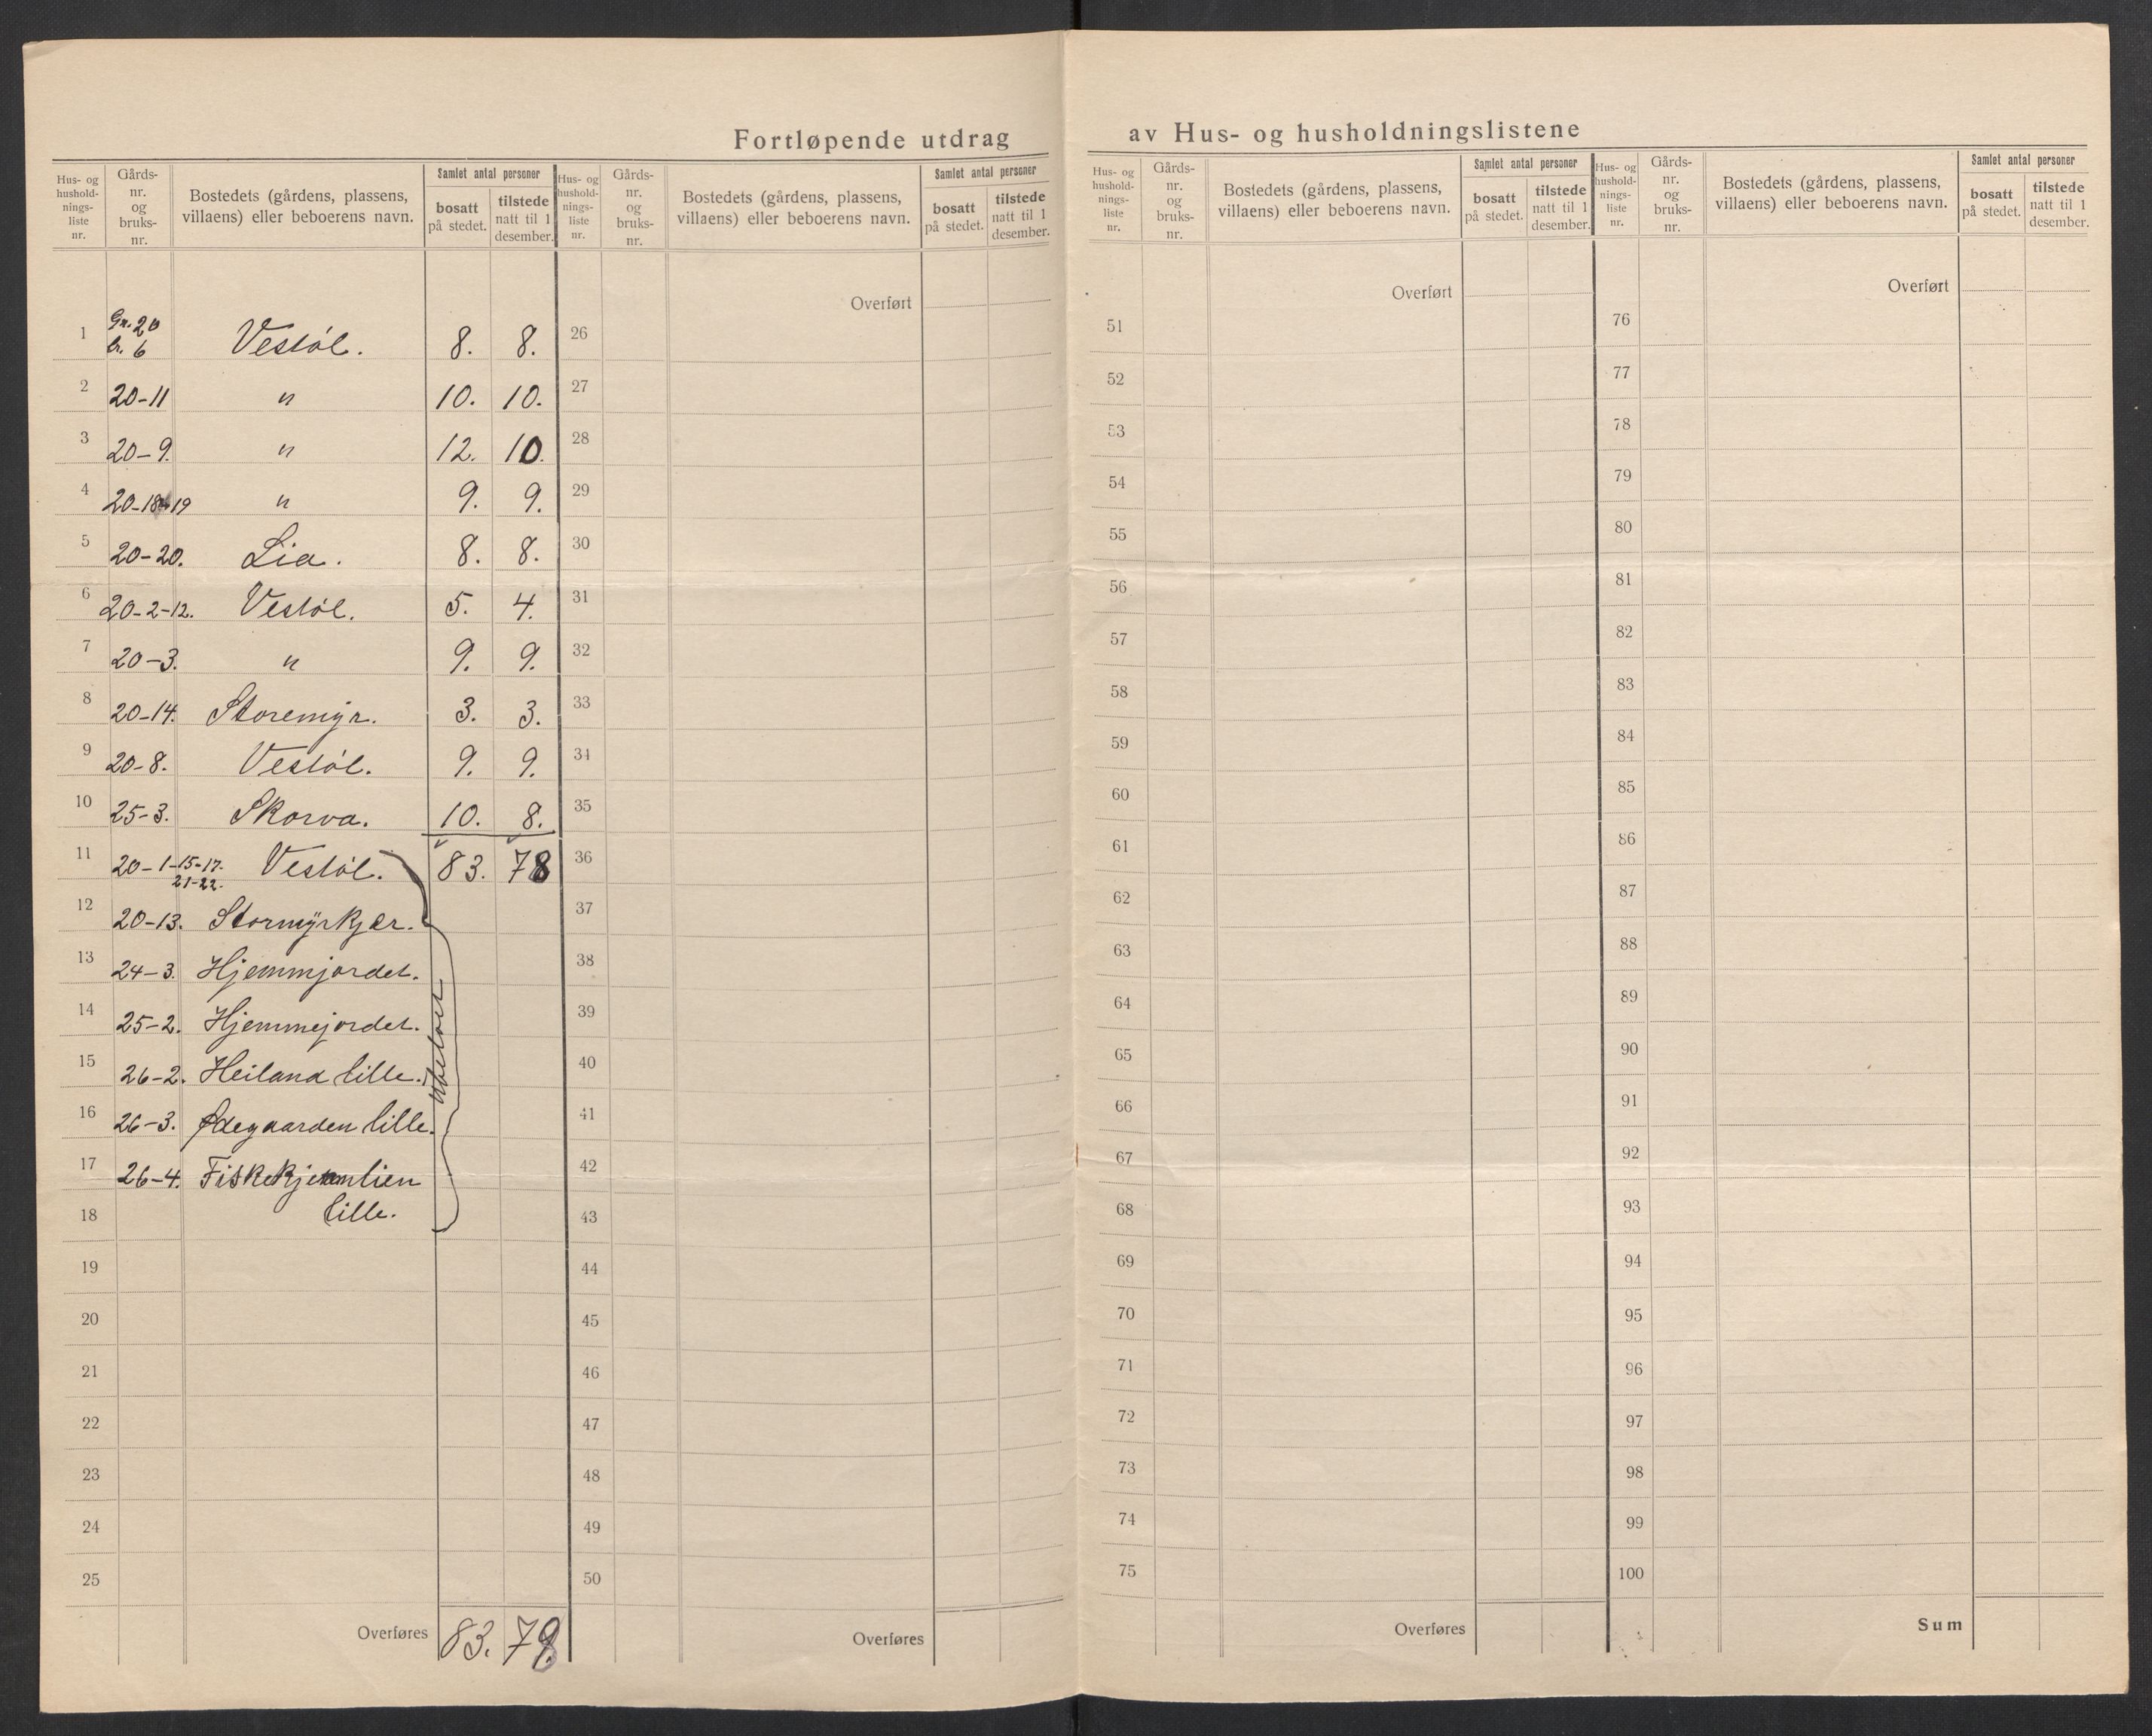 Fortløpende utdrag av Hus- og husholdningslistene
Hus- og hushold-nings-liste nr. Gårds-nr. og bruks-nr. Bostedets (gårdens, plassens, villaens) eller beboerens navn. Samlet antal personer bosatt på stedet. tilstede natt til 1 desember.
1 Gr. 20 br. 6 Vestøl. 8. 8.
2 20-11 " 10. 10.
3 20-9. " 12. 10.
4 20-18-19 " 9. 9.
5 20-20. Lia. 8. 8.
6 20-2-12. Vestøl. 5. 4.
7 20-3. " 9. 9.
8 20-14. Storemyr. 3. 3.
9 20-8. Vestøl. 9. 9.
10 25-3. Skorva. 10. 8.
11 20-1-15-17. 21-22. Vestøl. 83. 78
12 20-13. Stormyrkjær.
13 24-3. Hjemmjordet.
14 25-2. Hjemmejordet.
15 26-2. Heiland lille.
16 26-3. Ødegaarden lille.
17 26-4. Fiskekjennlien
18 lille.
ubebodd
19
20
21
22
23
24
25
Overføres 83. 78
Hus- og hushold-nings-liste nr. Gårds-nr. og bruks-nr. Bostedets (gårdens, plassens, villaens) eller beboerens navn. Samlet antal personer bosatt på stedet. tilstede natt til 1 desember.
Overført
26
27
28
29
30
31
32
33
34
35
36
37
38
39
40
41
42
43
44
45
46
47
48
49
50
Overføres
Hus- og hushold-nings-liste nr. Gårds-nr. og bruks-nr. Bostedets (gårdens, plassens, villaens) eller beboerens navn. Samlet antal personer bosatt på stedet. tilstede natt til 1 desember.
Overført
51
52
53
54
55
56
57
58
59
60
61
62
63
64
65
66
67
68
69
70
71
72
73
74
75
Overføres
Hus- og hushold-nings-liste nr. Gårds-nr. og bruks-nr. Bostedets (gårdens, plassens, villaens) eller beboerens navn. Samlet antal personer bosatt på stedet. tilstede natt til 1 desember.
Overført
76
77
78
79
80
81
82
83
84
85
86
87
88
89
90
91
92
93
94
95
96
97
98
99
100
Sum